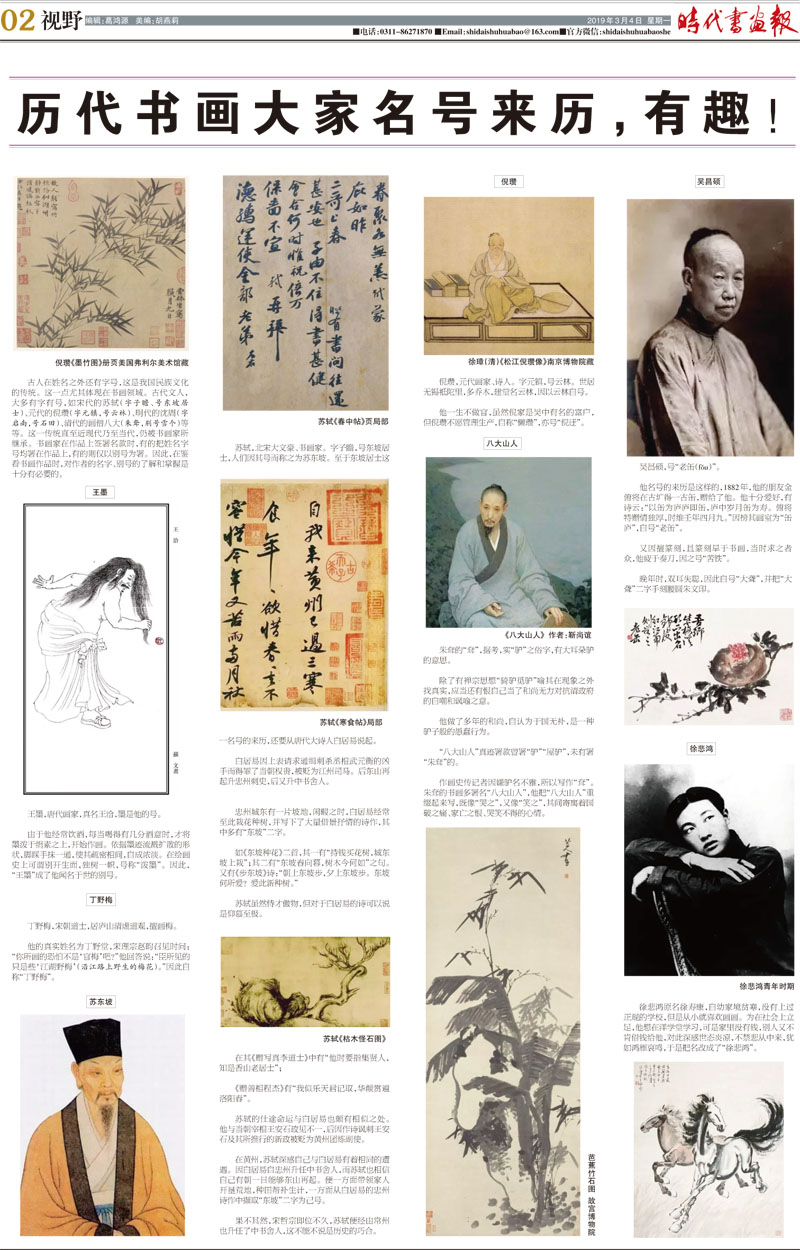 02 视野 编辑:葛鸿源 美编:胡燕莉
2019年3月4日 星期一
■电话:0311-86271870 ■Email:shidaishuhuabao@163.com■官方微信:shidaishuhuabaoshe
时代书画报
历代书画大家名号来历,有趣!
倪瓒《墨竹图》册页美国弗利尔美术馆藏
古人在姓名之外还有字号,这是我国民族文化
的传统。这一点尤其体现在书画领域。古代文人,
大多有字有号,如宋代的苏轼(字子瞻、号东坡居
士)、元代的倪瓒(字元镇,号云林)、明代的沈周(字
启南,号石田)、清代的画僧八大(朱耷,别号雪个)等
等。这一传统直至近现代乃至当代,仍被书画家所
继承。书画家在作品上签署名款时,有的把姓名字
号均署在作品上,有的则仅以别号为署。因此,在鉴
看书画作品时,对作者的名字、别号的了解和掌握是
十分有必要的。
王墨
王洽
王墨,唐代画家,真名王洽,墨是他的号。
由于他经常饮酒,每当喝得有几分酒意时,才将
墨泼于绢素之上,开始作画。依据墨迹流溅扩散的形
状,脚踩手抹一通,使其疏密相间,自成浓淡。在绘画
史上可谓别开生面,独树一帜,号称“泼墨”。因此,
“王墨”成了他闻名于世的别号。
丁野梅
丁野梅,宋朝道士,居庐山清虚道观,擅画梅。
他的真实姓名为丁野堂,宋理宗赵昀召见时问:
“你所画的恐怕不是‘官梅’吧?”他回答说:“臣所见的
只是些‘江湖野梅’(沿江路上野生的梅花)。”因此自
称“丁野梅”。
苏东坡
苏轼《春中帖》页局部
苏轼,北宋大文豪、书画家。字子瞻,号东坡居
士,人们因其号而称之为苏东坡。至于东坡居士这
自我来黄州已过三寒
食年年欲惜春春去不
容惜今年又苦雨两月秋
苏轼《寒食帖》局部
一名号的来历,还要从唐代大诗人白居易说起。
白居易因上表请求追缉刺杀丞相武元衡的凶
手而得罪了当朝权贵,被贬为江州司马。后东山再
起升忠州刺史,后又升中书舍人。
忠州城东有一片坡地,闲暇之时,白居易经常
至此栽花种树,并写下了大量借景抒情的诗作,其
中多有“东坡”二字。
如《东坡种花》二首,其一有“持钱买花树,城东
坡上栽”;其二有“东坡春向暮,树木今何如”之句。
又有《步东坡》诗:“朝上东坡步,夕上东坡步。东坡
何所爱? 爱此新种树。”
苏轼虽然恃才傲物,但对于白居易的诗可以说
是仰慕至极。
苏轼《枯木怪石图》
在其《赠写真李道士》中有“他时要指集贤人,
知是香山老居士”;
《赠善相程杰》有“我似乐天君记取,华颠赏遍
洛阳春”。
苏轼的仕途命运与白居易也颇有相似之处。
他与当朝宰相王安石政见不一,后因作诗讽刺王安
石及其所推行的新政被贬为黄州团练副使。
在黄州,苏轼深感自己与白居易有着相同的遭
遇。因白居易自忠州升任中书舍人,而苏轼也相信
自己有朝一日能够东山再起。便一方面带领家人
开垦荒地,种田帮补生计,一方面从白居易的忠州
诗作中撷取“东坡”二字为己号。
果不其然,宋哲宗即位不久,苏轼便经由常州
也升任了中书舍人,这不能不说是历史的巧合。
倪瓒
徐璋(清)《松江倪瓒像》南京博物院藏
倪瓒,元代画家、诗人。字元镇,号云林。世居
无锡祗陀里,多乔木,建堂名云林,因以云林自号。
他一生不做官,虽然倪家是吴中有名的富户,
但倪瓒不愿管理生产,自称“懒瓒”,亦号“倪迂”。
八大山人
《八大山人》 作者:靳尚谊
朱耷的“耷”,据考,实“驴”之俗字,有大耳朵驴
的意思。
除了有禅宗思想“骑驴觅驴”喻其在现象之外
找真实,应当还有恨自己当了和尚无力对抗清政府
的自嘲和讽喻之意。
他做了多年的和尚,自认为于国无补,是一种
驴子般的愚蠢行为。
“八大山人”真迹署款曾署“驴”“屋驴”,未有署
“朱耷”的。
作画史传记者因嫌驴名不雅,所以写作“耷”。
朱耷的书画多署名“八大山人”,他把“八大山人”重
缀起来写,既像“哭之”,又像“笑之”,其间寄寓着国
破之痛、家亡之恨、哭笑不得的心情。
芭蕉竹石图 故宫博物院
吴昌硕
吴昌硕,号“老缶(fǒu)”。
他名号的来历是这样的,1882年,他的朋友金
俯将在古圹得一古缶,赠给了他。他十分爱好,有
诗云:“以缶为庐庐即缶,庐中岁月缶为寿。俯将
持赠情独厚,时维壬年四月九。”因榜其画室为“缶
庐”,自号“老缶”。
又因擅篆刻,且篆刻早于书画,当时求之者
众,他疲于奏刀,因之号“苦铁”。
晚年时,双耳失聪,因此自号“大聋”,并把“大
聋”二字手刻腰圆朱文印。
徐悲鸿
徐悲鸿青年时期
徐悲鸿原名徐寿康,自幼家境贫寒,没有上过
正规的学校,但是从小就喜欢画画。为在社会上立
足,他想在洋学堂学习,可是家里没有钱,别人又不
肯借钱给他,对此深感世态炎凉,不禁悲从中来,犹
如鸿雁哀鸣,于是把名改成了“徐悲鸿”。